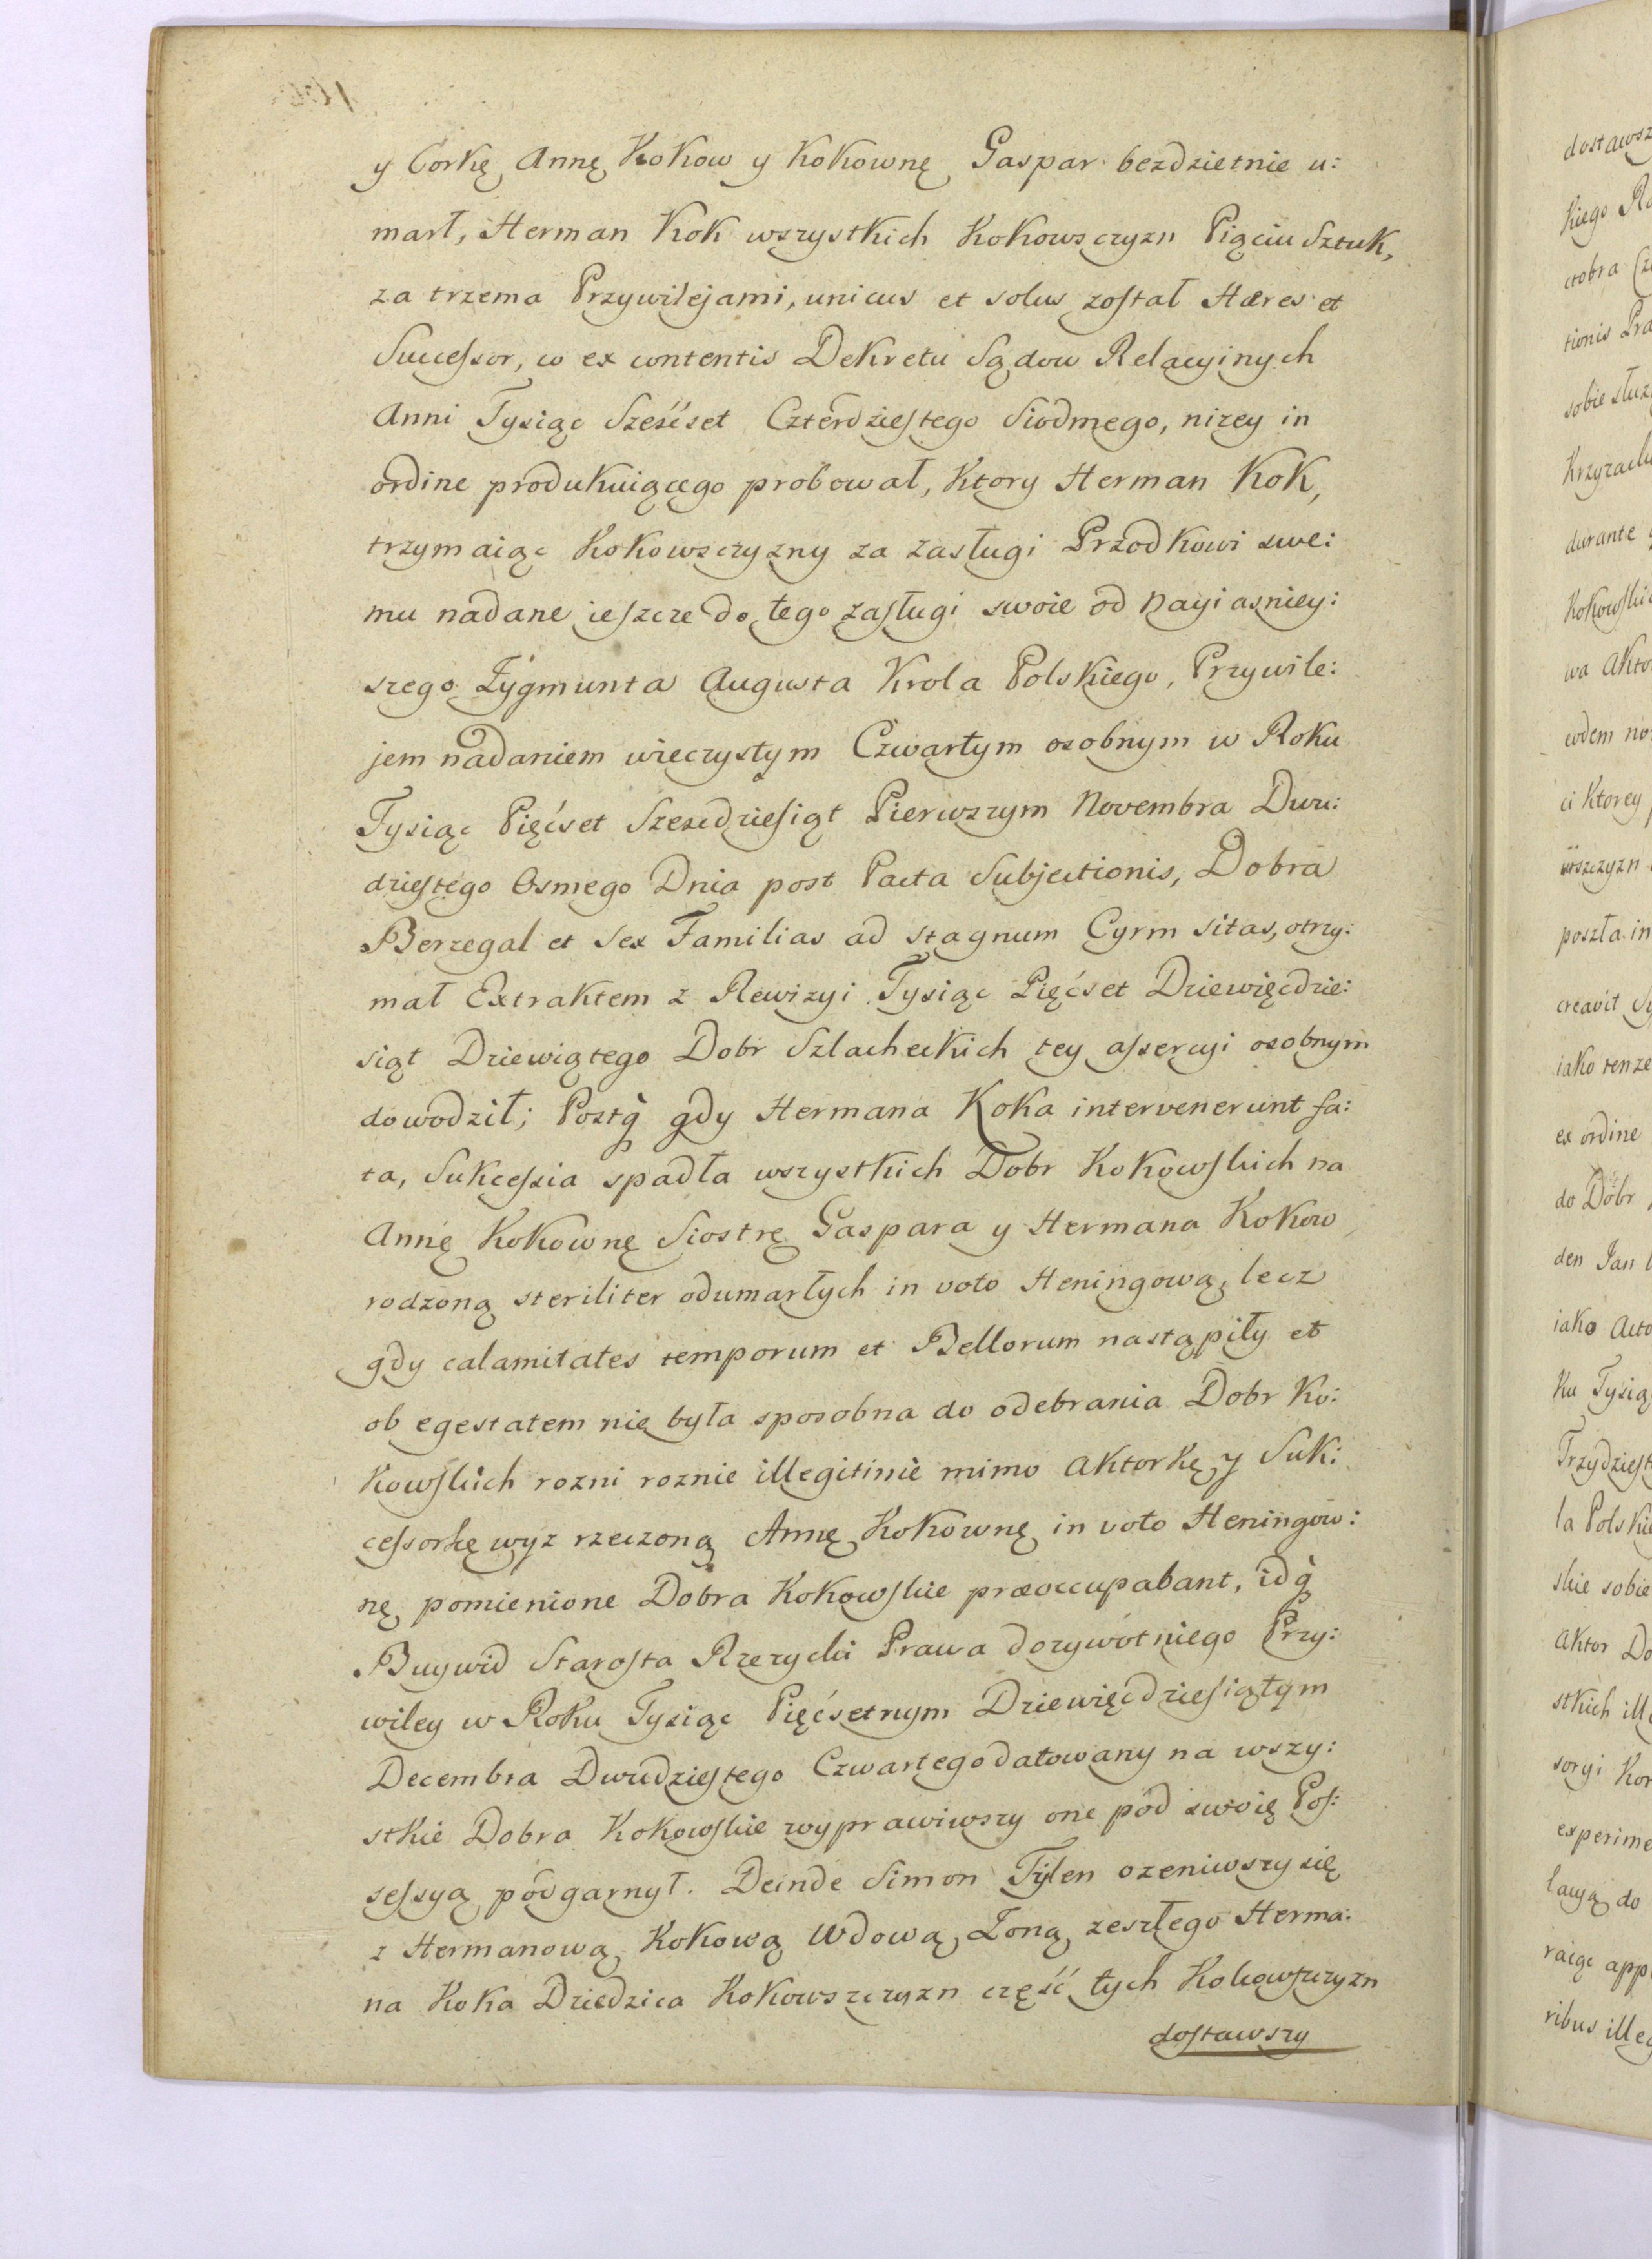 y Corkę Annę Kokow y Kokownę Gaspar bezdzietnie u:
marł, Herman Kok wszystkich Kokowsczyzn Pięciu Sztuk,
za trzema Przywilejami, unicus et solus zoſtał Hæres et
Succeſsor, co ex contentis Dekretu Sądow Relacyinych
Anni Tysiąc Sześćset Czterdzieſtego Siodmego, nizey in
ordine produkuiącego probował, Ktory Herman Kok,
trzymaiąc Kokowsczyzny za zasługi Przodkowi swe:
mu nadane ieſzcze do tego zaſługi swoie od Nayiasniey:
szego Zygmunta Augusta Krola Polskiego, Przywile:
jem nadaniem wieczystym Czwartym osobnym w Roku
Tysiąc Pięćset Szesćdzieſiąt Pierwszym Novembra Dwu:
dzieſtego Osmego Dnia post Pacta Subjectionis, Dobra
Berzegal et Sex Familias ad stagnum Cyrm sitas, otrzy:
mał Extraktem z Rewizyi Tysiąc Pięćset Dziewięcdzie:
siąt Dziewiątego Dobr Szlacheckich tey aſsercyi osobnym
dowodził; Postq̀ gdy Hermana Koka intervenerunt fa:
ta, Sukceſsia spadła wszystkich Dobr Kokowſkich na
Annę Kokownę Siostrę Gaspara y Hermana Kokow
rodzoną steriliter odumarłych in voto Heningową, lecz
gdy calamitates temporum et Bellorum nastąpiły et
ob egestatem nie była sposobna do odebrania Dobr Ko:
kowſkich rozni roznie illegitimè mimo Aktorkę y Suk:
ceſsorkę wyz rzeczoną Annę Kokownę in voto Heningow:
nę, pomienione Dobra Kokowſkie præoccupabant, idq̀
Buywid Starosta Rzezycki Prawa dozywotniego Przy:
wiley w Roku Tysiąc Pięćsetnym Dziewięćdzieſiątym
Decembra Dwudzieſtego Czwartego datowany na wszy:
stkie Dobra Kokowſkie wyprawiwszy one pod swoię Poſ:
seſsyą podgarnył. Deinde Simon Tylen ozeniwszy się
z Hermanową Kokową Wdową, Zoną zeszłego Herma:
na Koka Dziedzica Kokowszczyzn część tych Kokowſzczyzn
doſtawszy